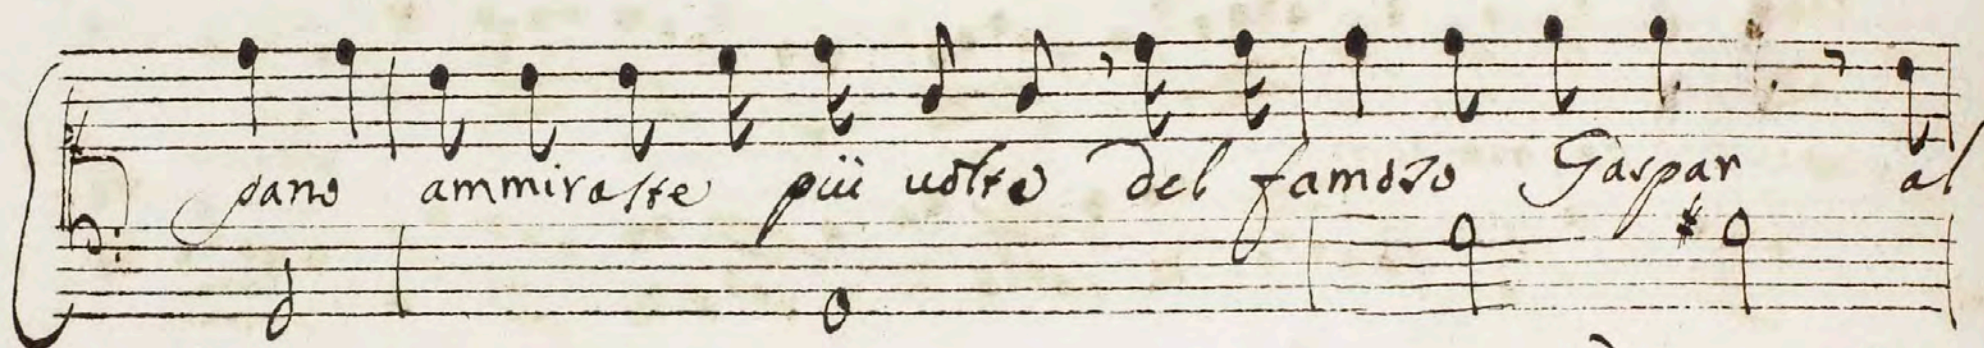 pano ammiraste più uolte del famoso Gaspar al